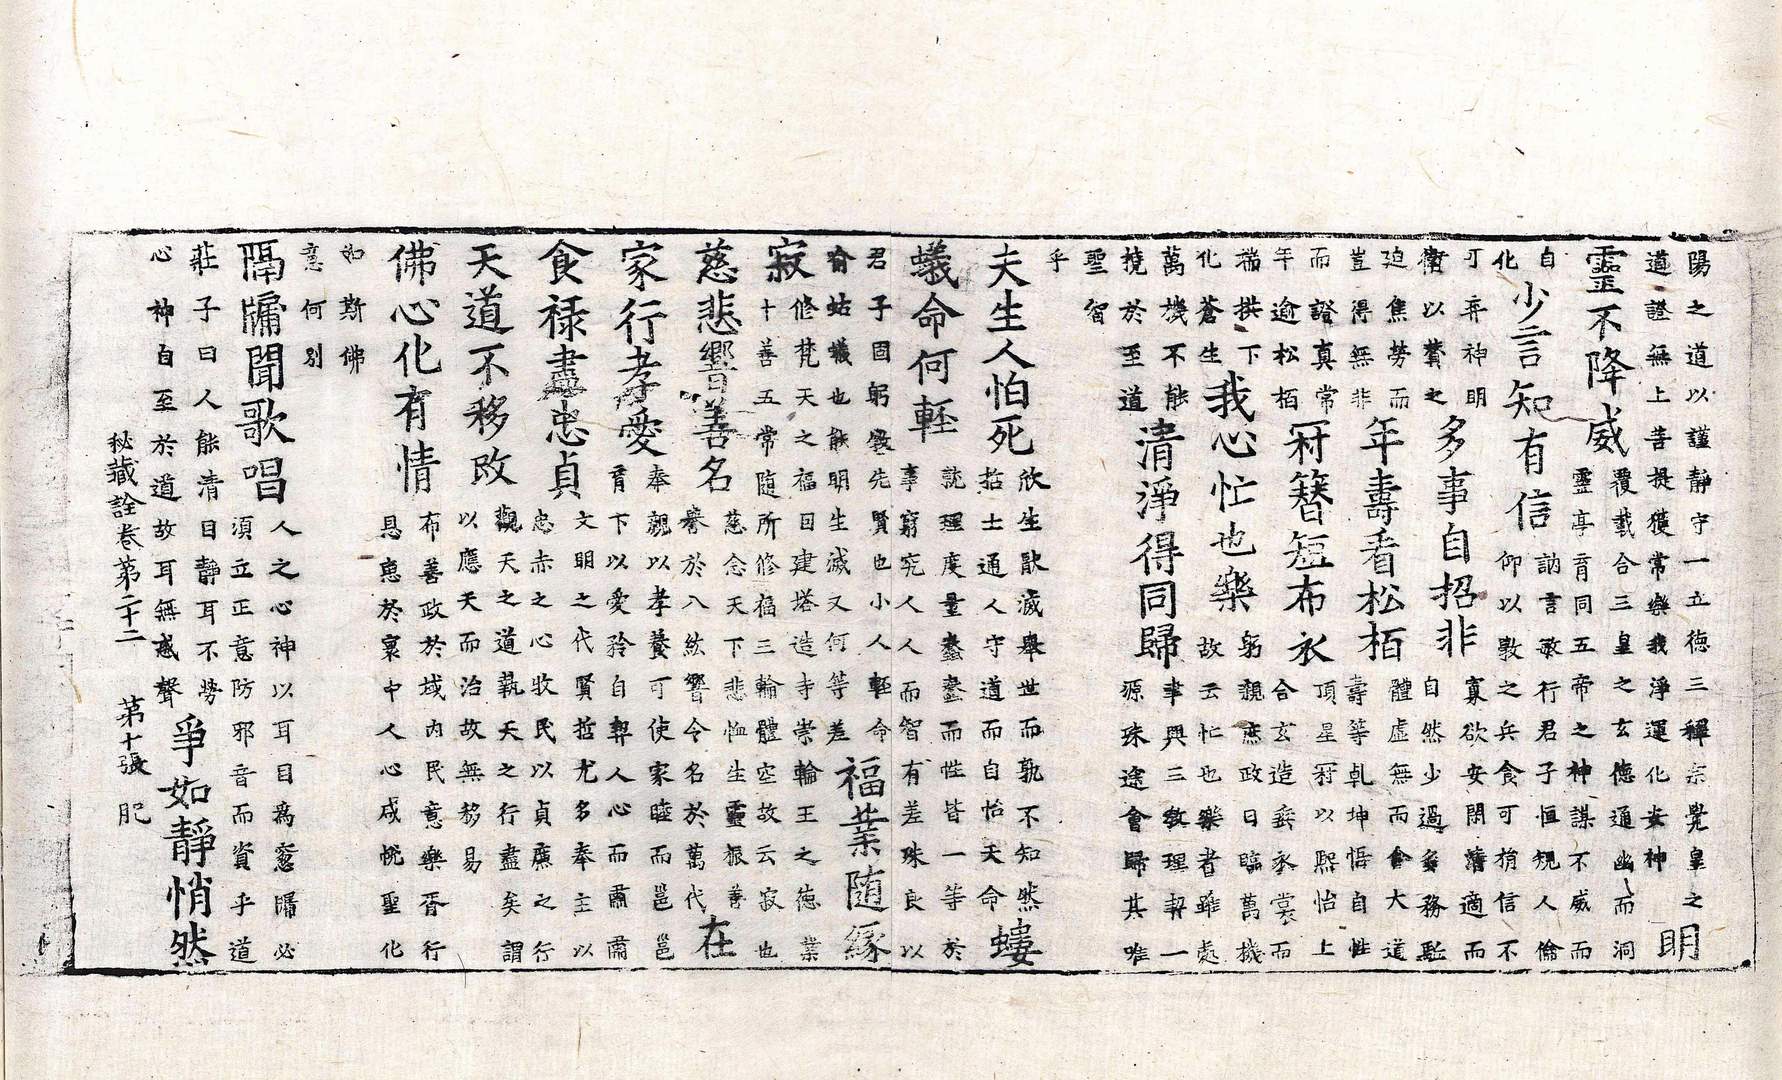 陽之道以謹靜守一立德三禪宗覺皇之
道證無上菩提獲常樂我淨運化玄神 明
靈不降威 覆載合三皇之玄德通幽而洞
靈亭育同五帝之神謀不威而
自
化 少言知有信 訥言敏行君子恒規人倫
仰以敦之兵食可捎信不
可弃神明 多事自招非 寡欲安閑蕭適而
衛以贊之 自然少過多務監
迫焦勞而
豈得無非 年壽看松栢 體虛無而會大道
壽等乹坤悟自性
而證真常
年逾松栢 冠簪短布衣 頂星冠以熙怡上
合玄造垂衣裳而
端拱下
化蒼生 我心忙也樂 躬親庶政日臨萬機
故云忙也樂者雖處
萬機不能
撓於至道 清淨得同歸 聿興三教理契一
源殊途會歸其唯
聖智
乎
夫生人怕死 欣生猒滅舉世而孰不知然
括士通人守道而自怡天命 螻
蟻命何輕 詵理度量蠢蠢而性皆一等於
事窮究人人而智有差殊良以
君子固躬數先賢也小人輕命
喻蛄蟻也能明生滅又何等差 福業随緣
修梵天之福曰建塔造寺崇輪王之德業
寂 十善五常随所修福三輪體空故云寂也
慈悲響善名 慈念天下悲恤生靈振善
譽於八紘響令名於萬代 在
家行孝愛 奉親以孝養可使家睦而邕邕
育下以愛矜自契人心而肅肅
食祿盡忠貞 文明之代賢哲尤多奉主以
忠赤之心牧民以貞廉之行
天道不移改 觀天之道執天之行盡矣謂
以應天而治故無移易
佛心化有情 布善政於域内民意樂胥行
恩惠於寰中人心咸悅聖化
如斯佛
意何別
隔牖聞歌唱 人之心神以耳目爲窓牖必
須立正意防邪音而資乎道
莊子曰人能清目靜耳不勞
心神自至於道故耳無惑聲 爭如靜悄然
秘藏詮卷第二十二 第十張 肥